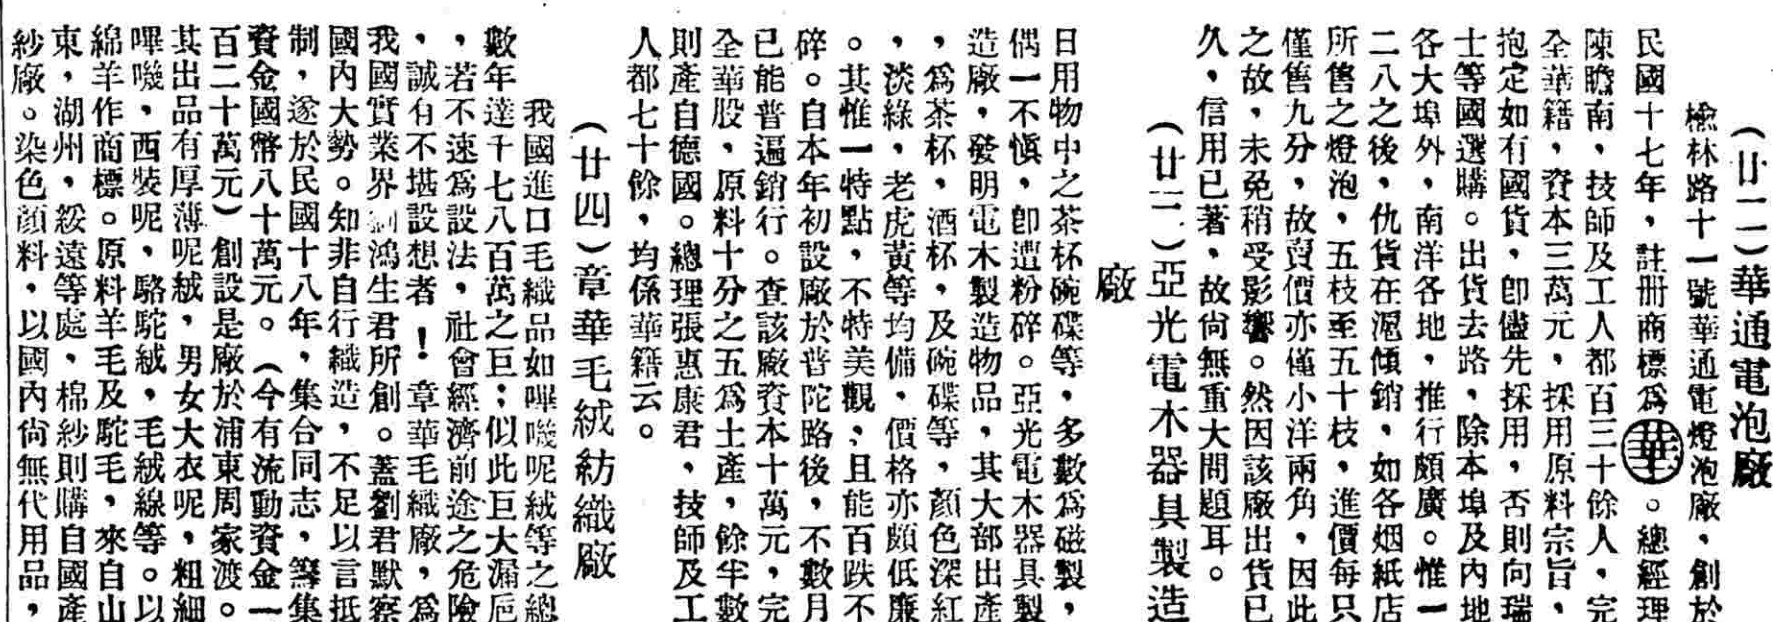 （廿二）華通電泡廠
楡林路十一號華通電燈泡廠，創於
民國十七年，註册商標爲華。總經理
陳瞻南，技師及工人都百三十餘人，完
全華籍，資本三萬元，採用原料宗旨，
抱定如有國貨，卽儘先採用，否則向瑞
士等國選購。出貨去路，除本埠及內地
各大埠外，南洋各地，推行頗廣。惟一
二八之後，仇貨在滬傾銷，如各烟紙店
所售之燈泡，五枝至五十枝，進價每只
僅售九分，故賣價亦僅小洋兩角，因此
之故，未免稍受影響。然因該廠出貨已
久，信用已著，故尙無重大問題耳。
（廿三）亞光電木器具製造
廠
日用物中之茶杯碗碟等，多數爲磁製，
偶一不愼，卽遭粉碎。亞光電木器具製
造廠，發明電木製造物品，其大部出產
，爲茶杯，酒杯，及碗碟等，顏色深紅
，淡綠，老虎黃等均備，價格亦頗低廉
。其惟一特點，不特美觀，且能百跌不
碎。自本年初設廠於普陀路後，不數月
已能普遍銷行。查該廠資本十萬元，完
全華股，原料十分之五爲土產，餘半數
則產自德國。總理張惠康君，技師及工
人都七十餘，均係華籍云。
（廿四）章華毛絨紡織廠
我國進口毛織品如嗶嘰呢絨等之總
數年達千七八百萬之巨；似此巨大漏巵
，若不速爲設法，社會經濟前途之危險
，誠有不堪設想者！章華毛織廠，爲
我國實業界劉鴻生君所創。蓋劉君默察
國內大勢。知非自行織造，不足以言抵
制，遂於民國十八年，集合同志，籌集
資金國幣八十萬元。（今有流動資金一
百二十萬元）創設是廠於浦東周家渡。
其出品有厚薄呢絨，男女大衣呢，粗細
嗶嘰，西裝呢，駱駝絨，毛絨線等。以
綿羊作商標。原料羊毛及駝毛，來自山
東，湖州，綏遠等處，棉紗則購自國產
紗廠。染色顏料，以國內尙無代用品，